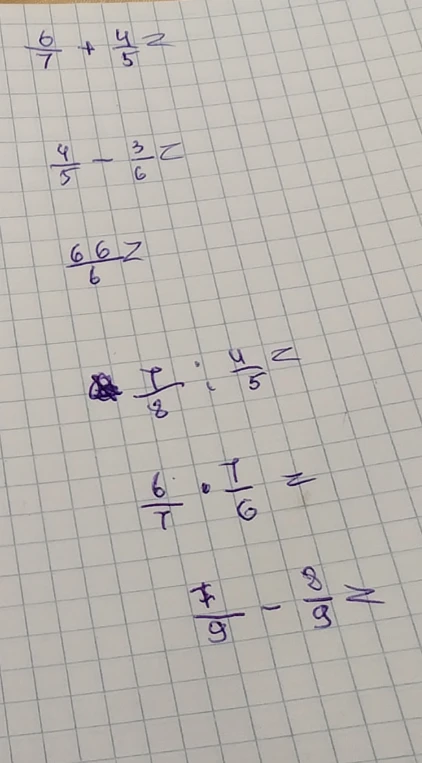 6/7 + 4/5 =
4/5 - 3/6 =
66/6 =
7/8 : 4/5 =
6/7 · 7/6 =
7/9 - 8/9 =